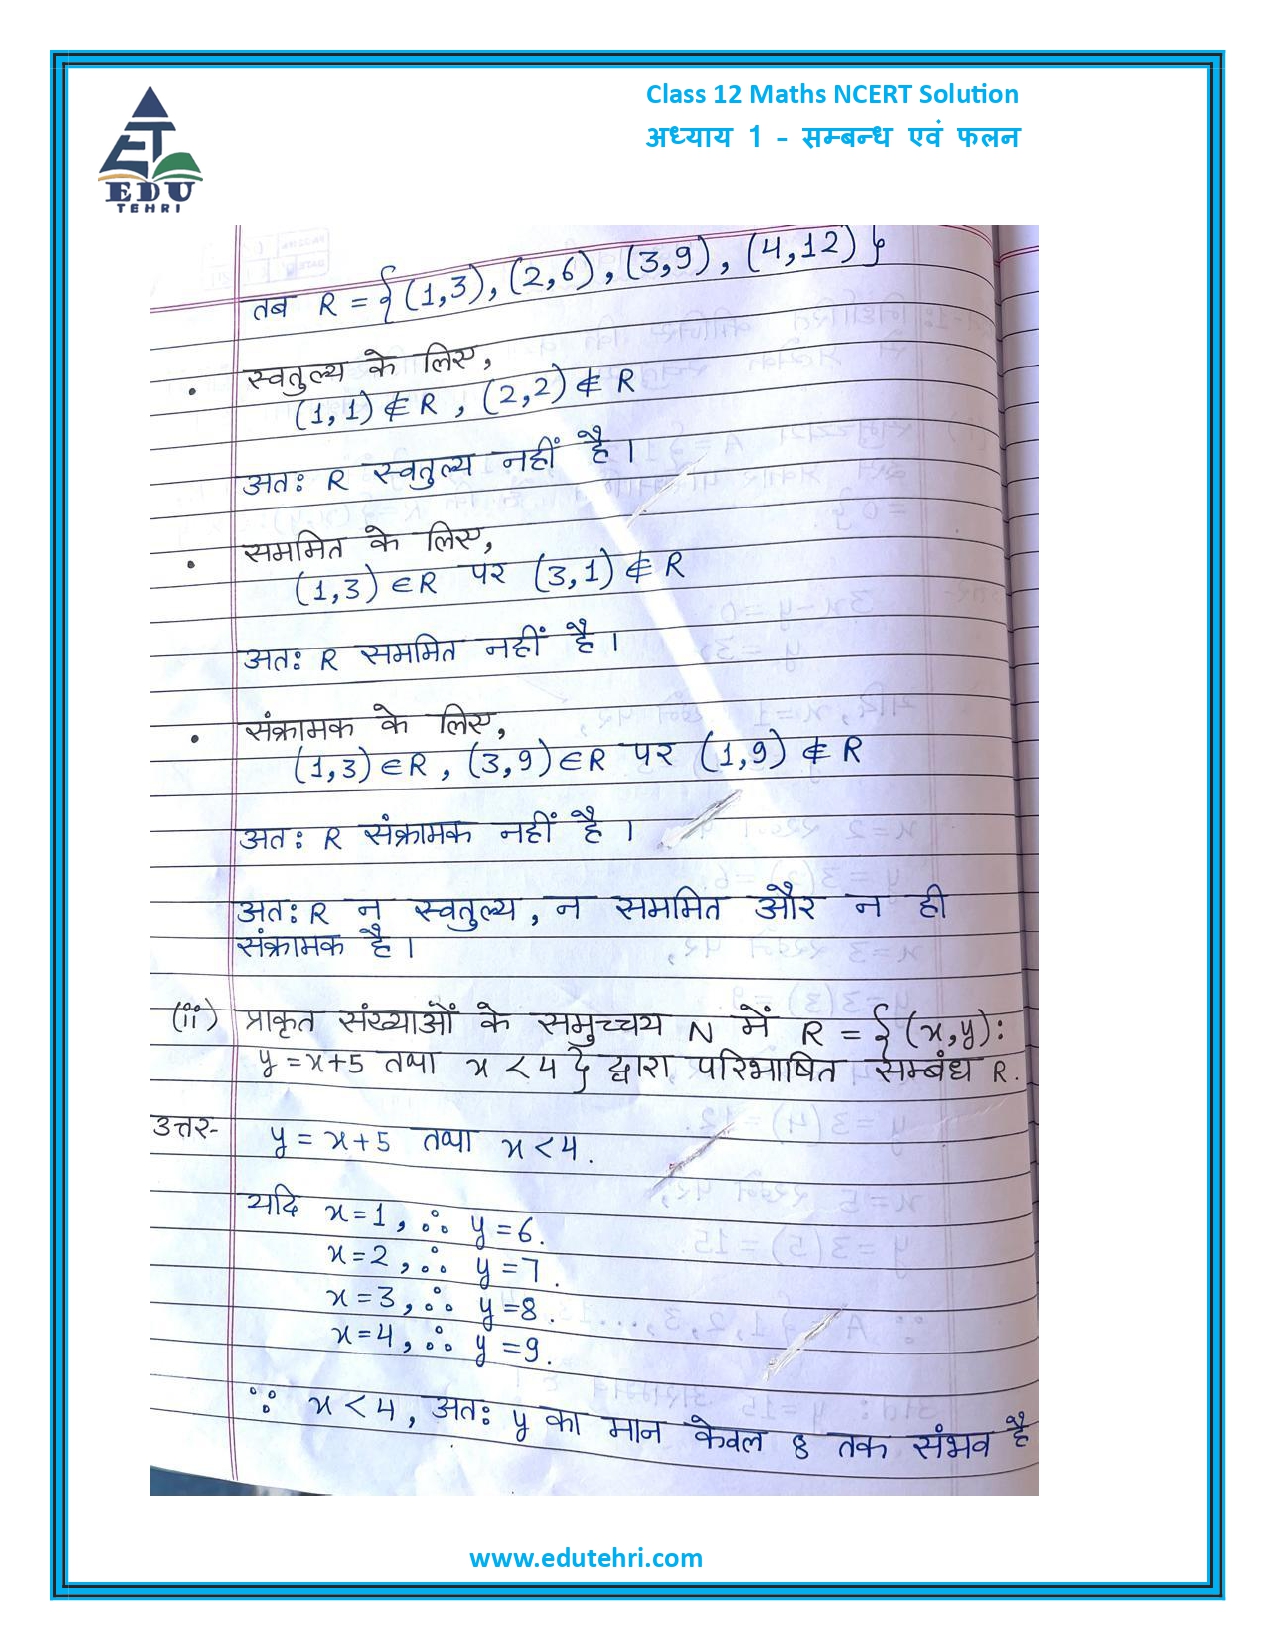 Class 12 Maths NCERT Solution
अध्याय 1 - सम्बन्ध एवं फलन
ET
EDU
TEHRI
तब R = {(1,3), (2,6), (3,9), (4,12)}
• स्वतुल्य के लिए,
(1,1) ∉ R , (2,2) ∉ R
अतः R स्वतुल्य नहीं है।
• सममित के लिए,
(1,3) ∈ R पर (3,1) ∉ R
अतः R सममित नहीं है।
• संक्रामक के लिए,
(1,3) ∈ R , (3,9) ∈ R पर (1,9) ∉ R
अतः R संक्रामक नहीं है।
अतः R न स्वतुल्य, न सममित और न ही
संक्रामक है।
(ii) प्राकृत संख्याओं के समुच्चय N में R = {(x,y):
y = x+5 तथा x < 4} द्वारा परिभाषित सम्बंध R.
उत्तर- y = x+5 तथा x < 4.
यदि x=1, ∴ y=6.
x=2, ∴ y=7.
x=3, ∴ y=8.
x=4, ∴ y=9.
∵ x < 4, अतः y का मान केवल 8 तक संभव है
www.edutehri.com